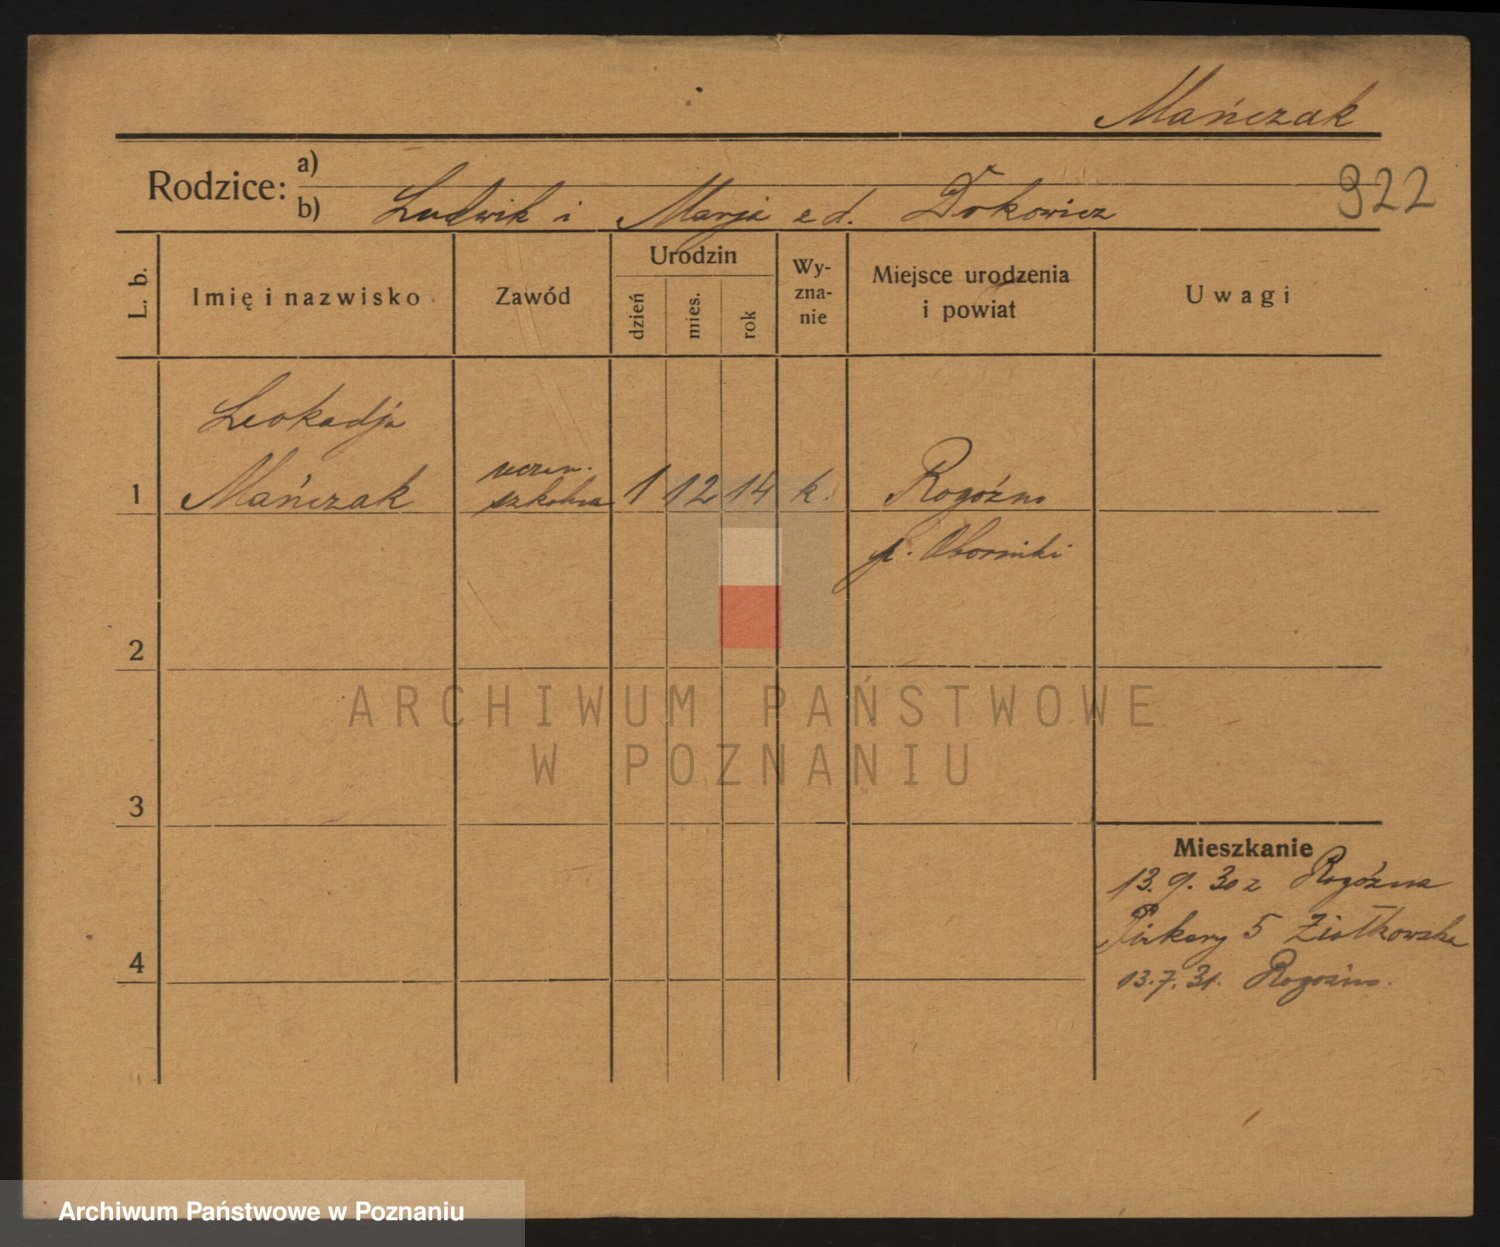 Mańczak
Rodzice: a)
b) Ludwik i Marja z d. Dokowicz
922
L. b.
Imię i nazwisko
Zawód
Urodzin
dzień
mies.
rok
Wy-
zna-
nie
Miejsce urodzenia
i powiat
Uwagi
Leokadja
uczen.
1 Mańczak szkolna 1 12 14 k. Rogoźno
p. Oborniki
2
ARCHIWUM PAŃSTWOWE
W POZNANIU
3
Mieszkanie
13. 9. 30 z Rogoźna
5 Ziołkowska
4
13. 7. 31. Rogoźno.
Archiwum Państwowe w Poznaniu